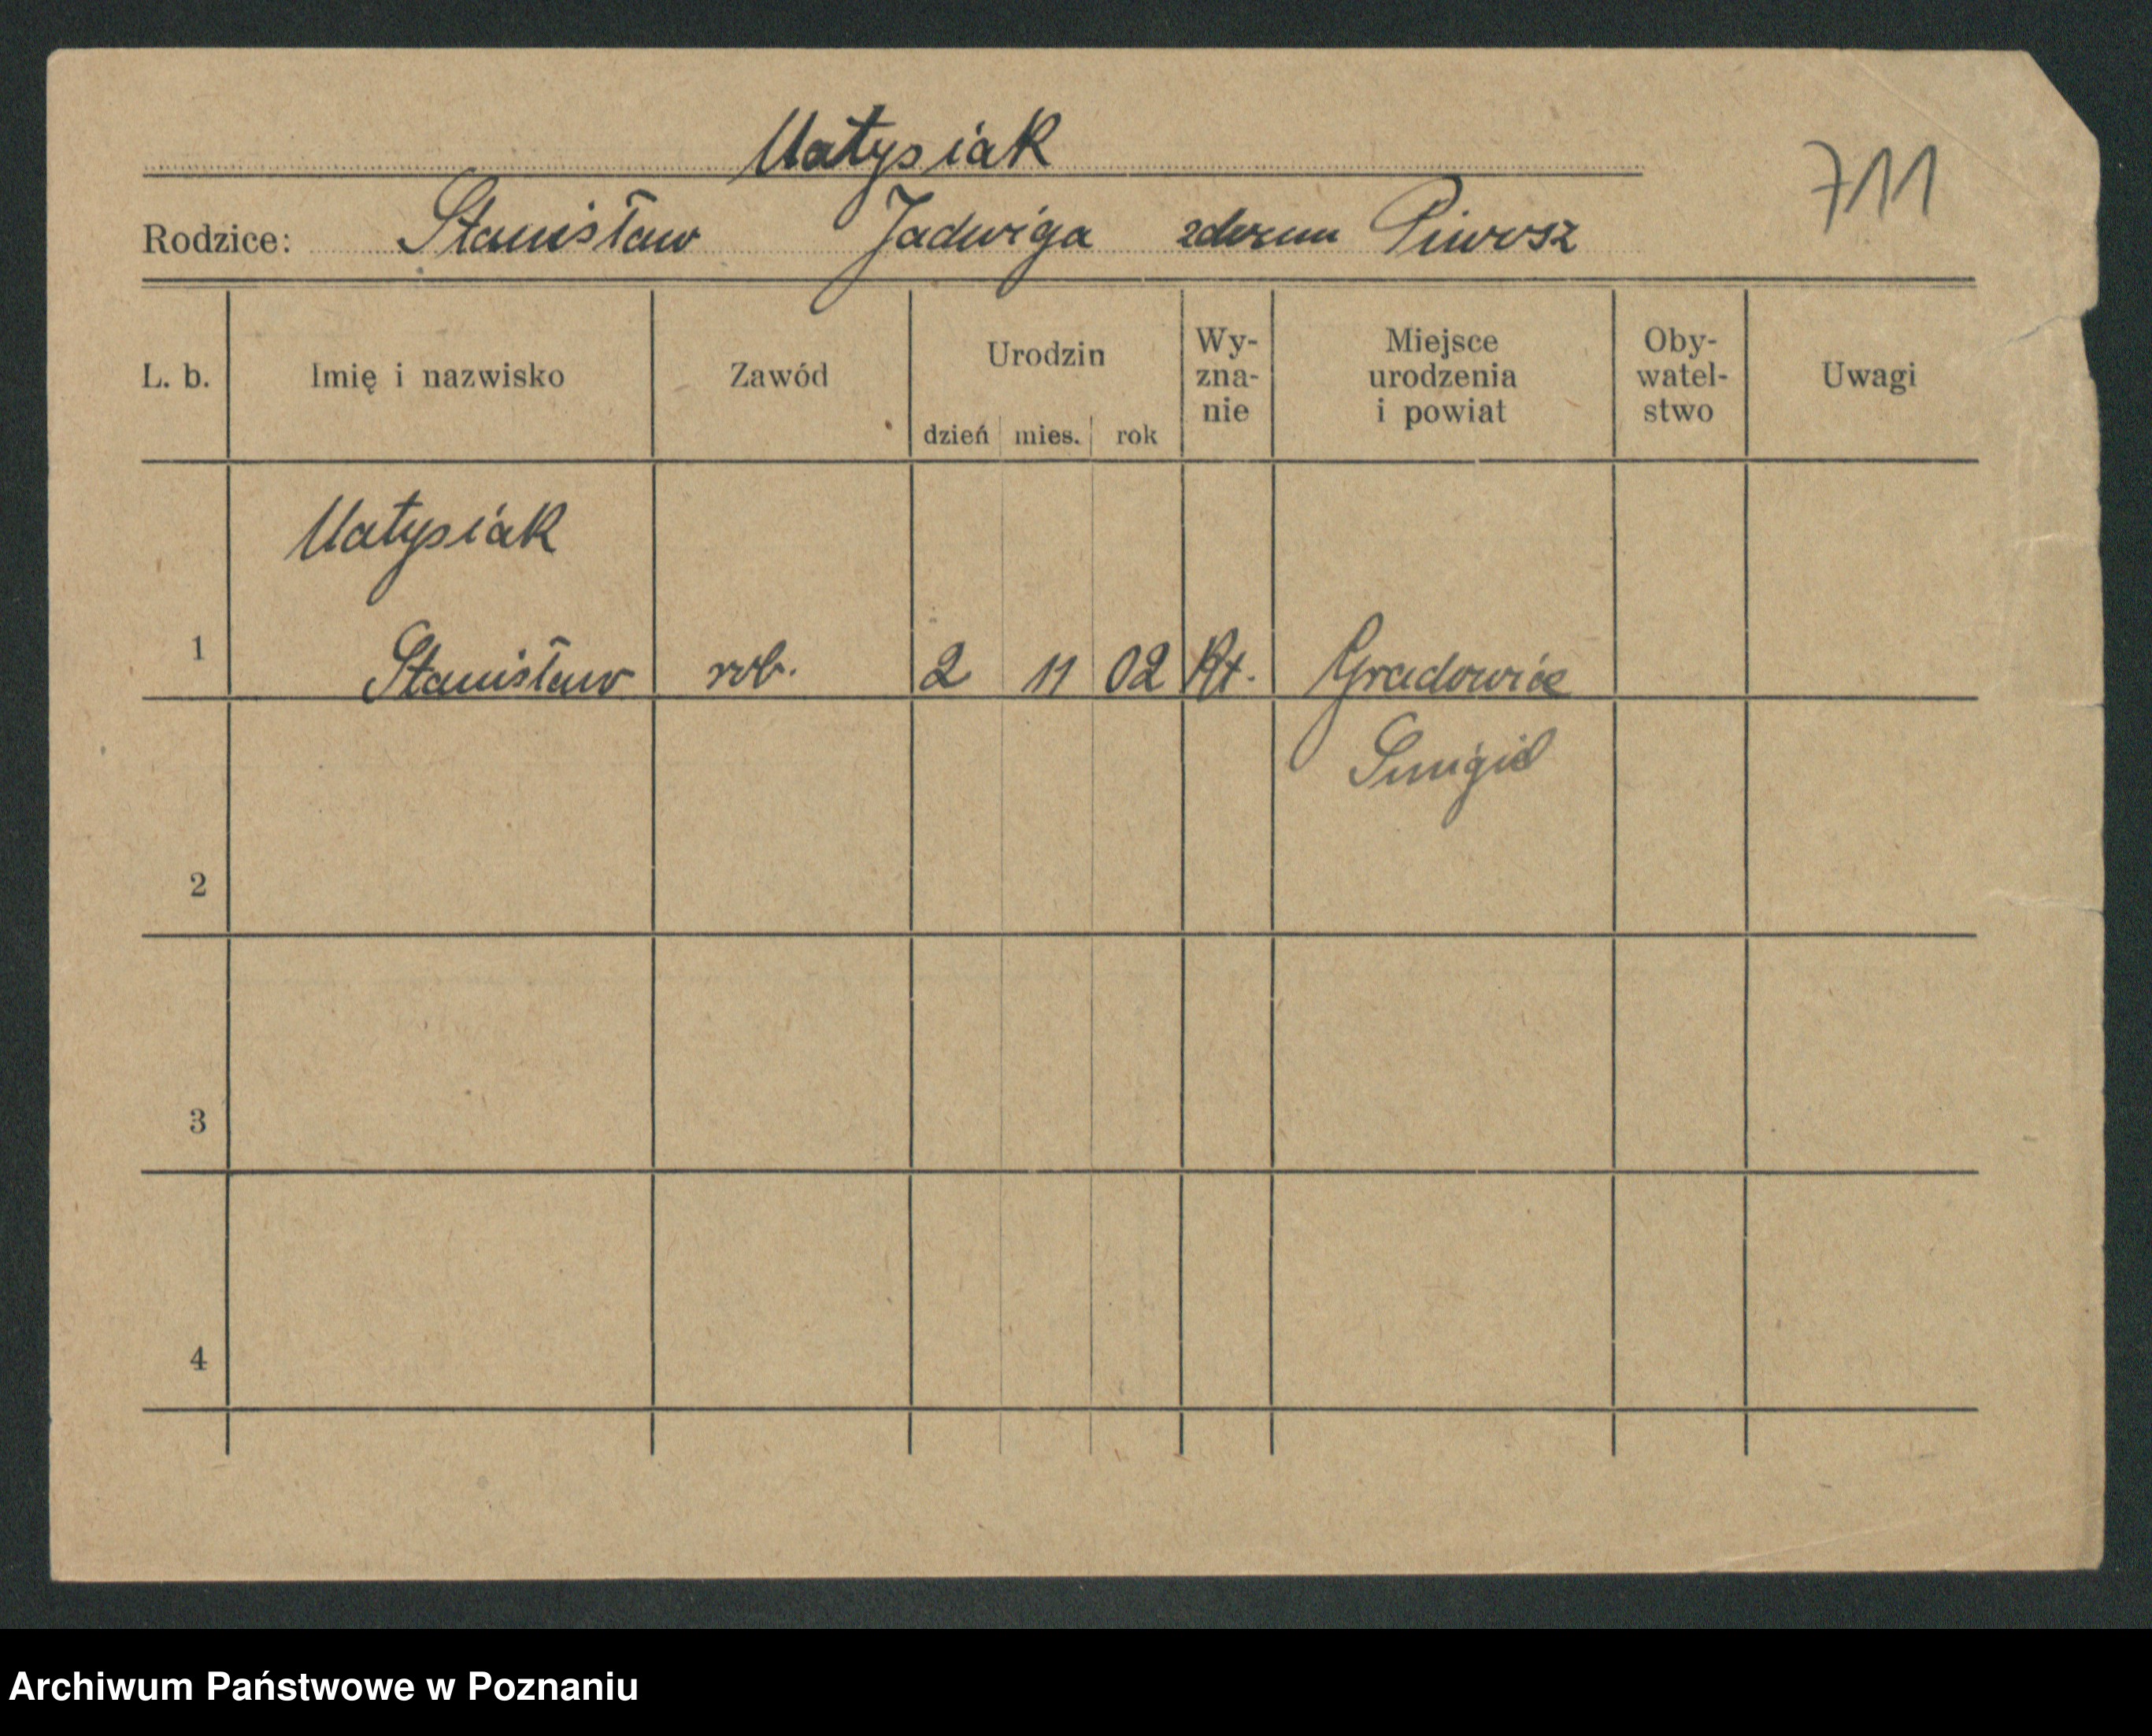 Matysiak
711
Rodzice: Stanisław Jadwiga zdomu Piwosz
L. b. Imię i nazwisko Zawód Urodzin dzień mies. rok Wy-zna-nie Miejsce urodzenia i powiat Oby-watel-stwo Uwagi
Matysiak
1 Stanisław rob. 2 11 02 Kt. Gradowice
Śmigiel
2
3
4
Archiwum Państwowe w Poznaniu